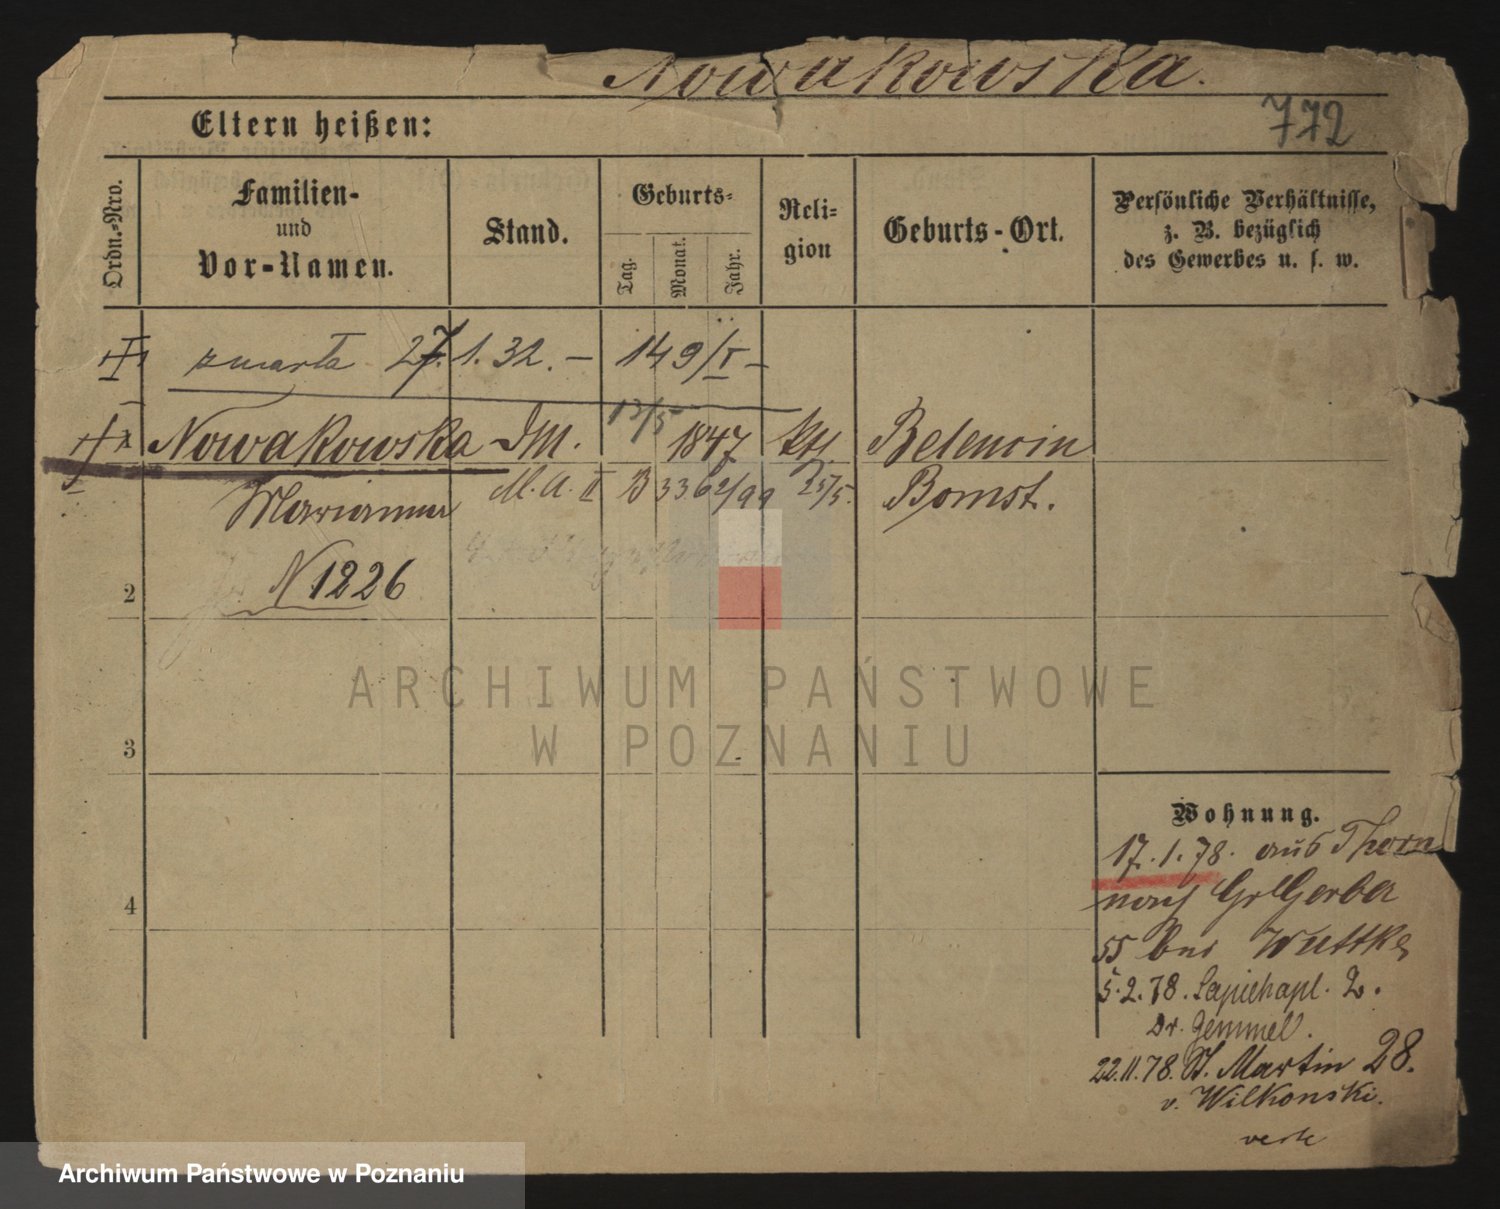 Nowakowska.
772
Eltern heißen:
Ordn.-Nro.
Familien-
und
Vor-Namen.
Stand.
Geburts-
Tag.
Monat.
Jahr.
Reli-
gion
Geburts-Ort.
Persönliche Verhältnisse,
z. B. bezüglich
des Gewerbes u. s. w.
zmarła 27.1.32. — 149/I —
13/5
Nowakowska DM. 1847 kth. Belencin
Marianna M.A. II B 3362/99 25/5. Bomst.
N 1226
2
3
4
ARCHIWUM PAŃSTWOWE
W POZNANIU
Wohnung.
17.1.78. aus Thorn
nach Gr Gerber
55 bei Wuttke
5.2.78. Sapiehapl. 2.
Dr. Gemmel.
22.11.78. St. Martin 28.
v. Wilkonski.
Archiwum Państwowe w Poznaniu